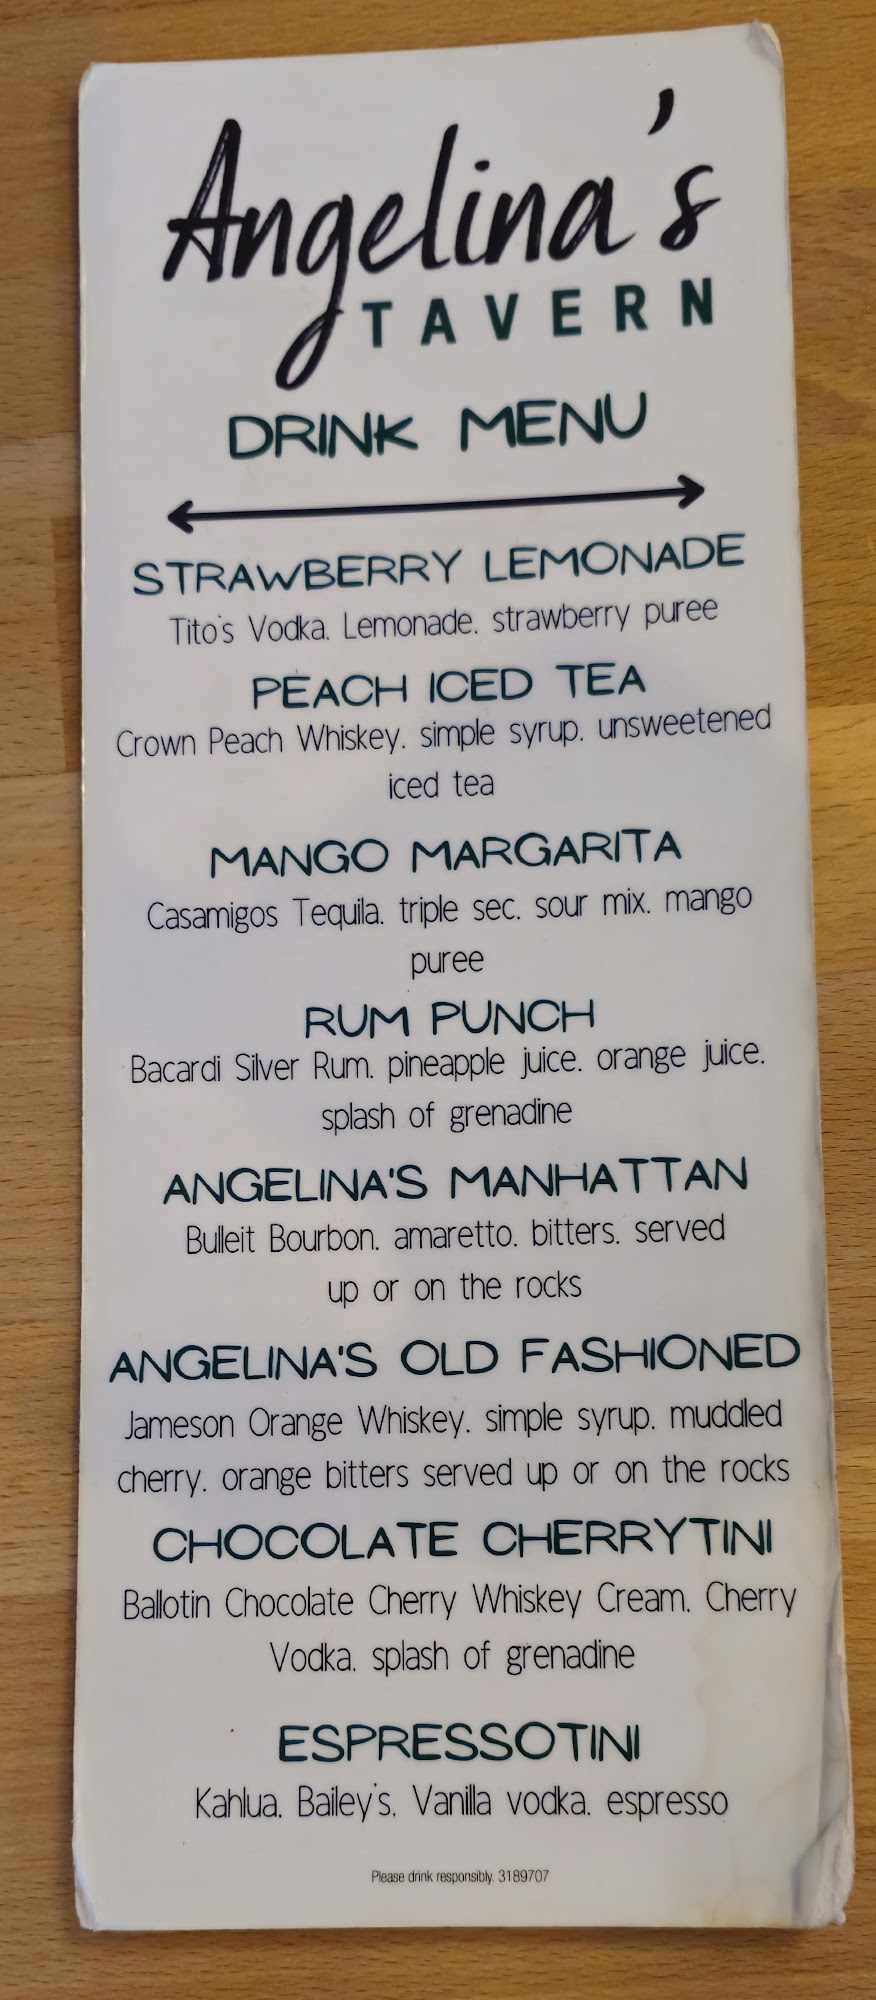 Angelina's
TAVERN
DRINK MENU
STRAWBERRY LEMONADE
Tito's Vodka, Lemonade, strawberry puree
PEACH ICED TEA
Crown Peach Whiskey, simple syrup, unsweetened
iced tea
MANGO MARGARITA
Casamigos Tequila, triple sec, sour mix, mango
puree
RUM PUNCH
Bacardi Silver Rum, pineapple juice, orange juice,
splash of grenadine
ANGELINA'S MANHATTAN
Bulleit Bourbon, amaretto, bitters, served
up or on the rocks
ANGELINA'S OLD FASHIONED
Jameson Orange Whiskey, simple syrup, muddled
cherry, orange bitters served up or on the rocks
CHOCOLATE CHERRYTINI
Ballotin Chocolate Cherry Whiskey Cream, Cherry
Vodka, splash of grenadine
ESPRESSOTINI
Kahlua, Bailey's, Vanilla vodka, espresso
Please drink responsibly. 3189707